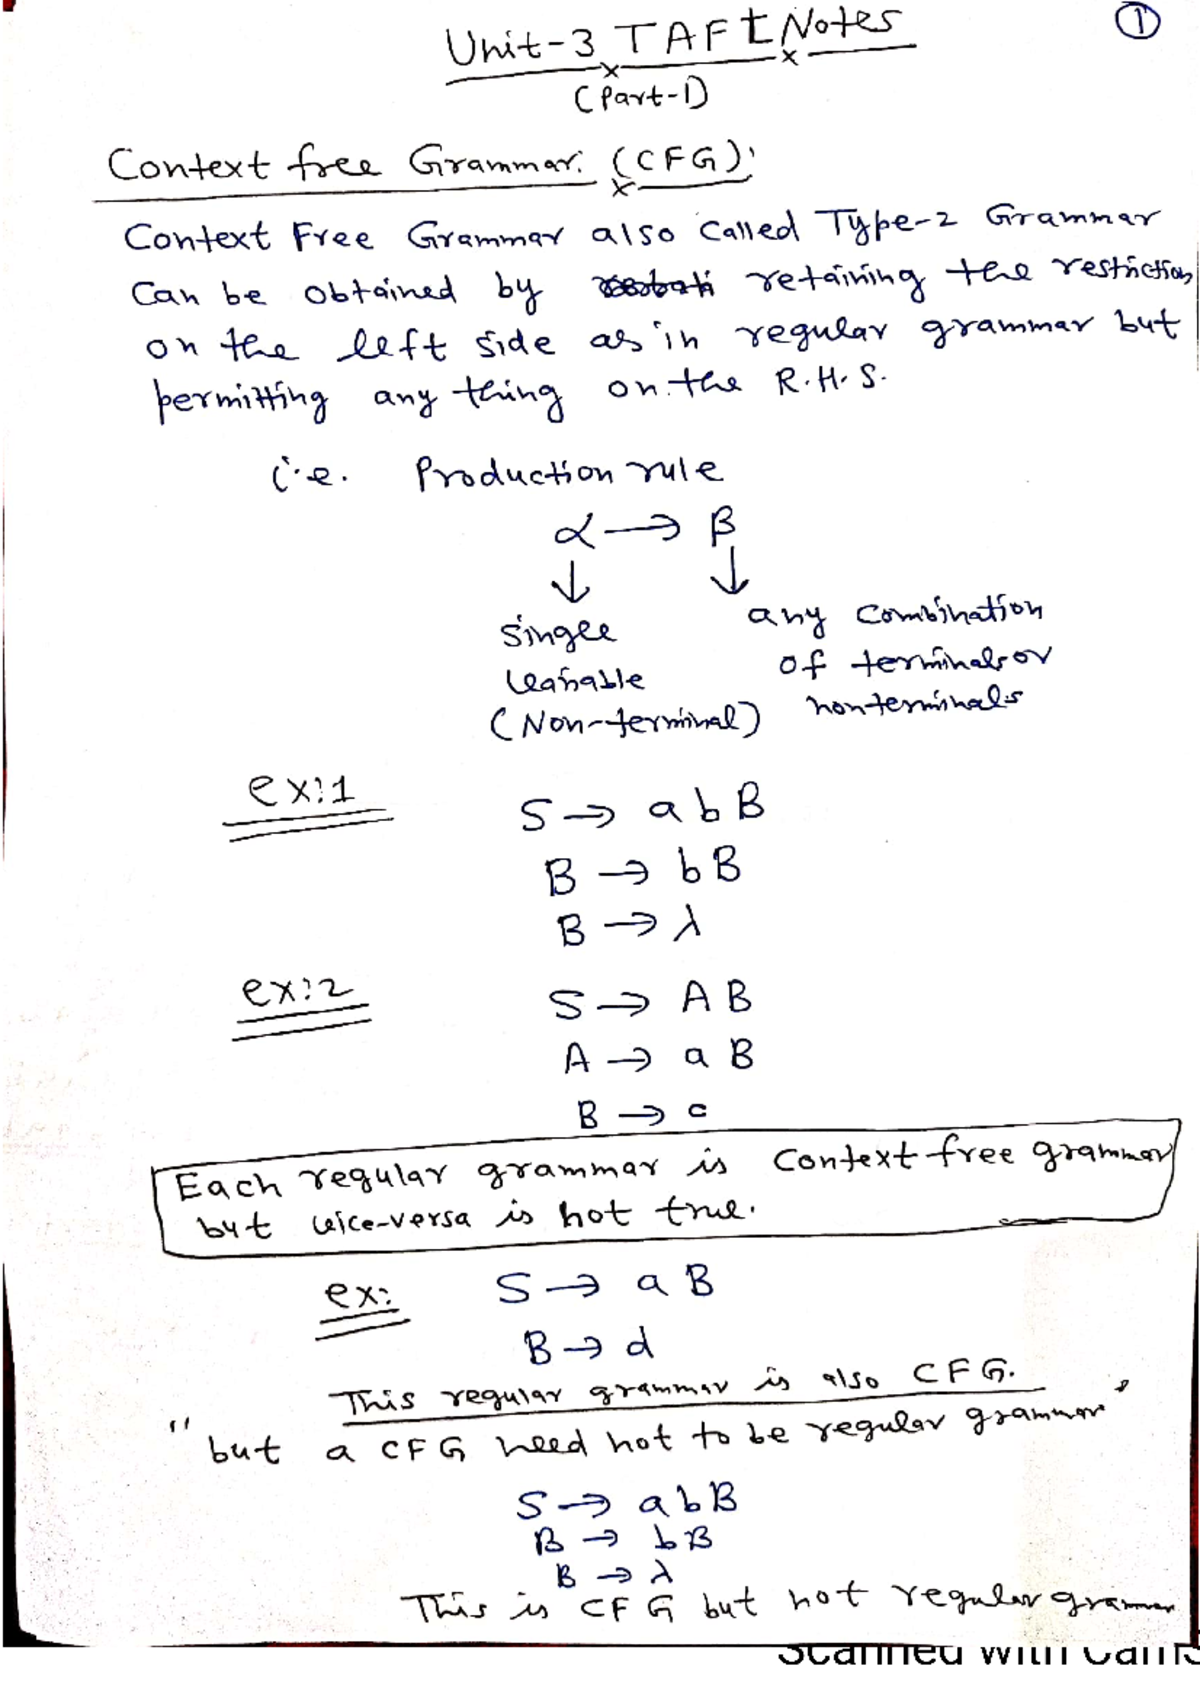 ①
Unit-3 TAFL Notes
(Part-1)
Context free Grammar: (CFG):
Context Free Grammar also Called Type-2 Grammar
Can be obtained by retaining the restriction
on the left side as in regular grammar but
permitting any thing on the R.H.S.
i.e. Production rule
α → β
↓ ↓
Single any Combination
Variable of terminals or
(Non-terminal) nonterminals
ex:1 S → abB
B → bB
B → λ
ex:2 S → AB
A → aB
B → c
Each regular grammar is Context free grammar
but vice-versa is not true.
ex: S → aB
B → d
This regular grammar is also CFG.
" but a CFG need not to be regular grammar"
S → abB
B → bB
B → λ
This is CFG but not regular grammar
Scanned with CamS